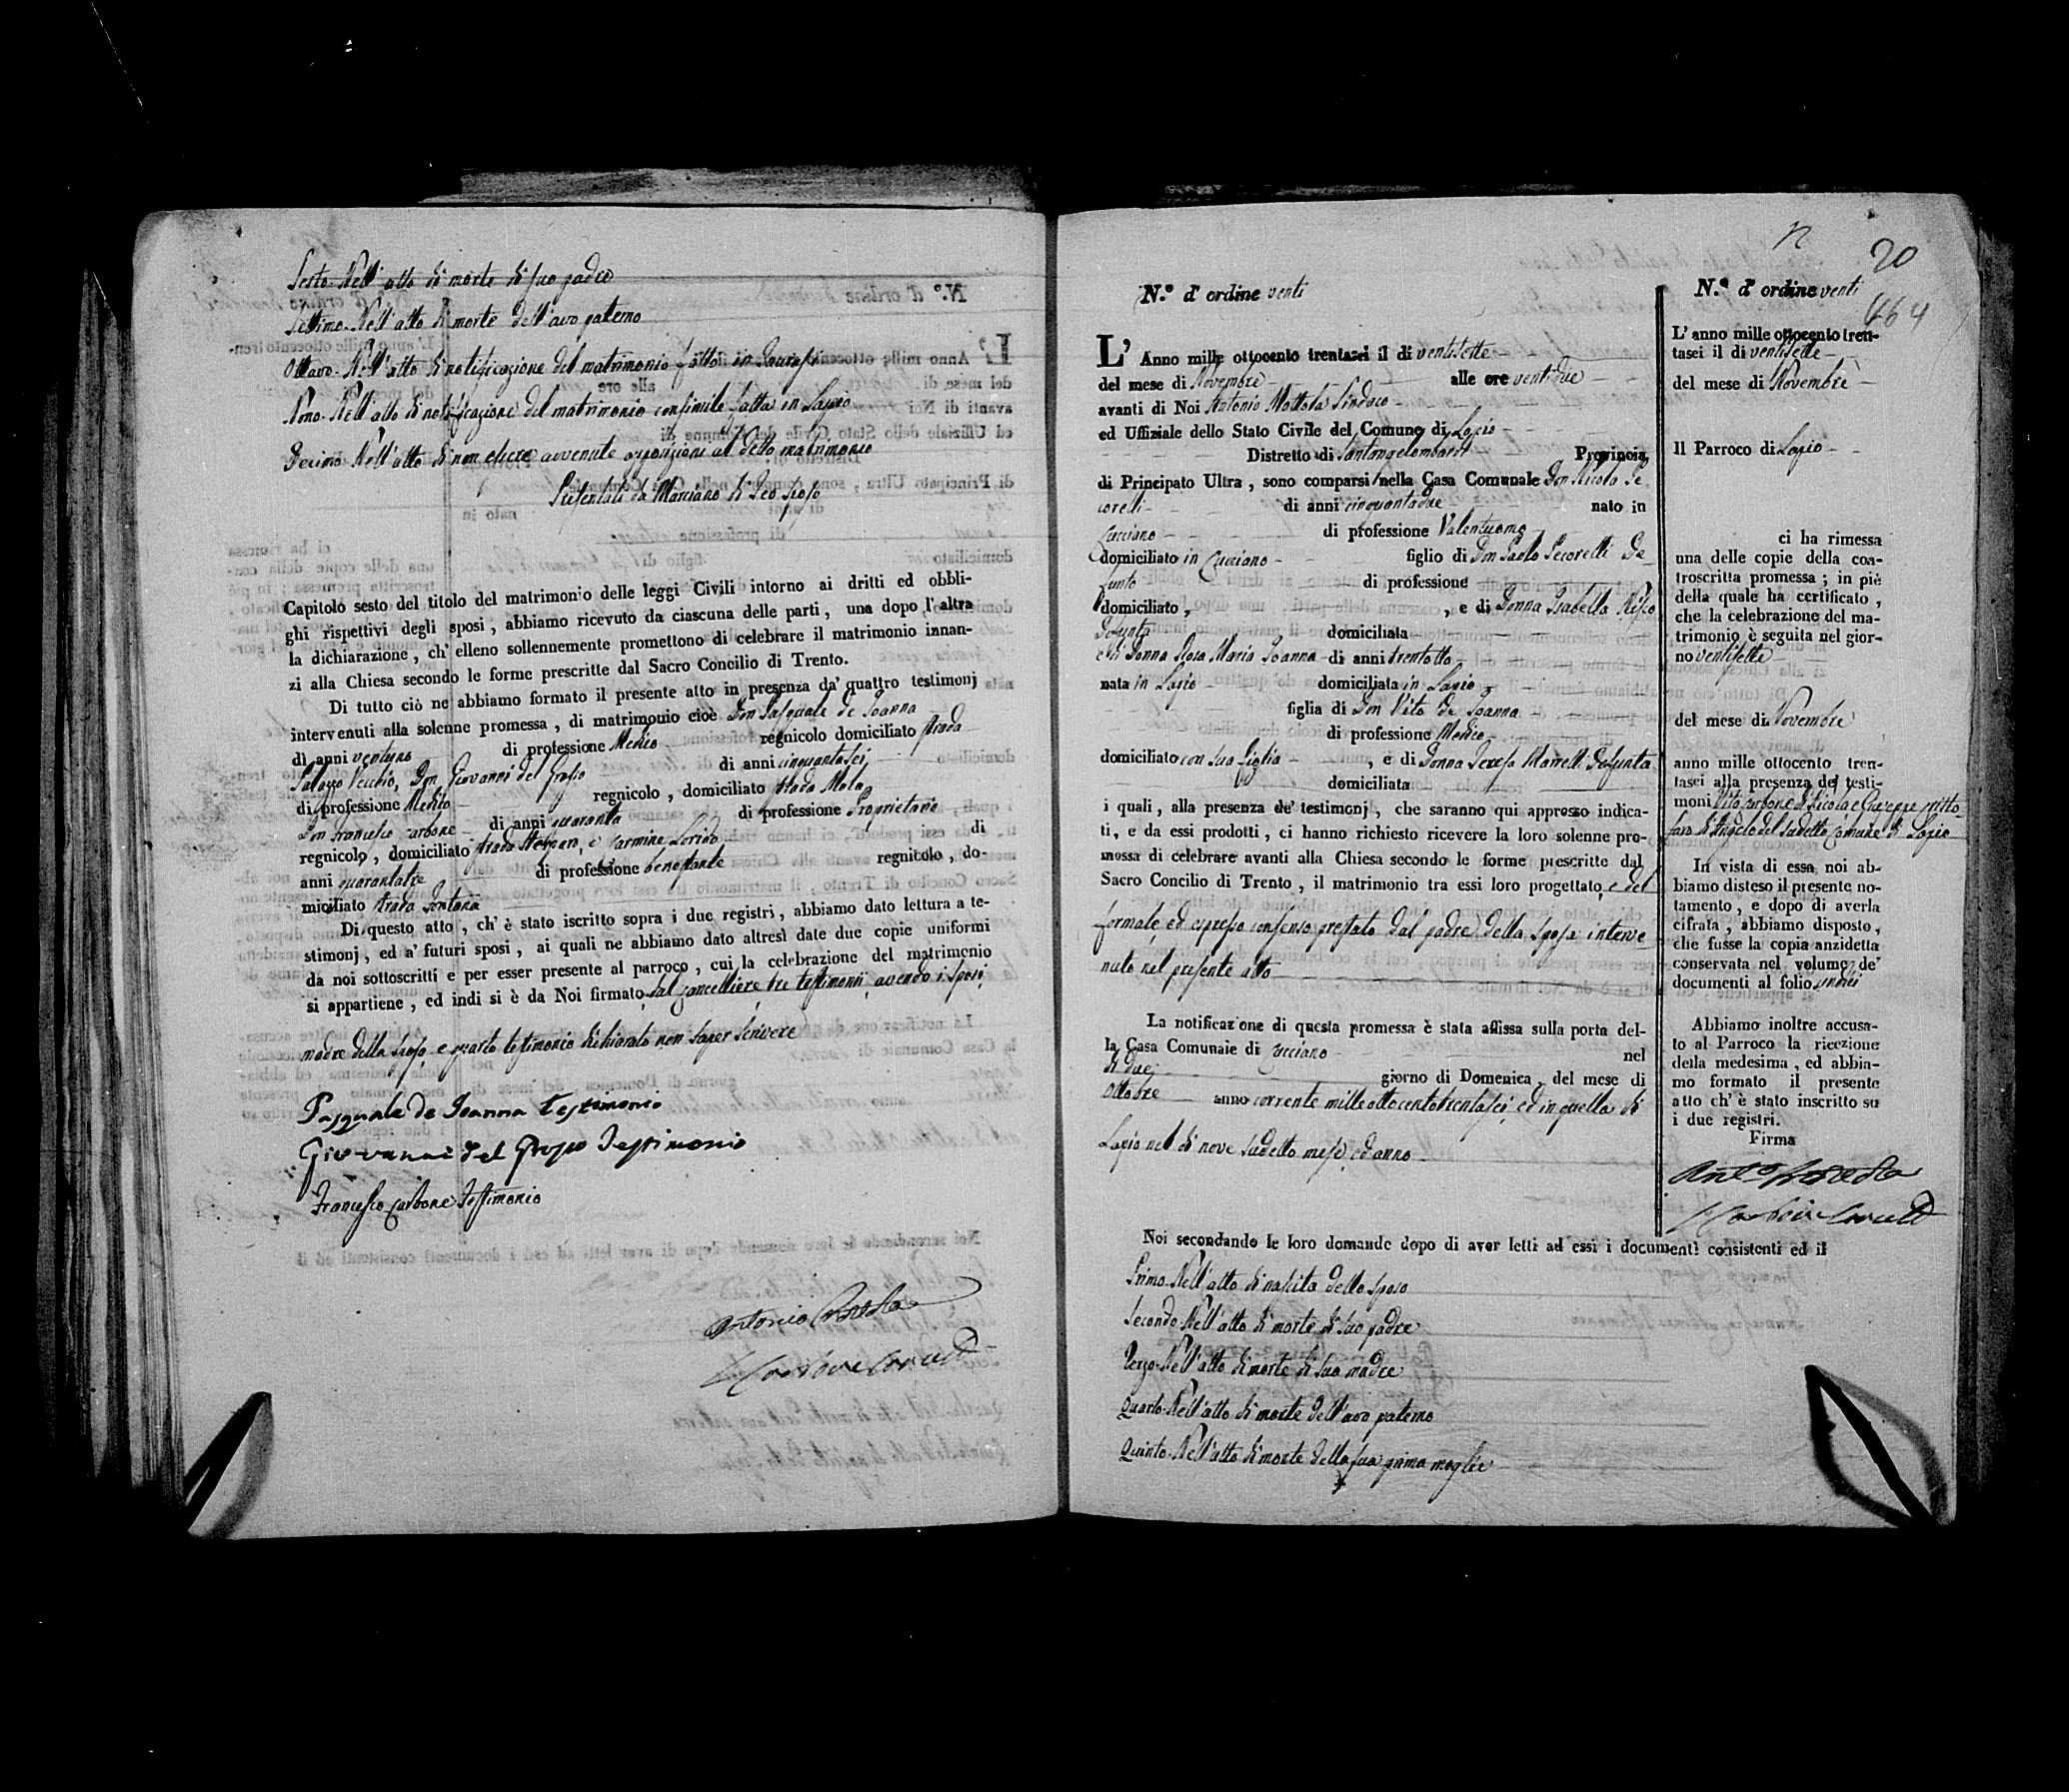 Sesto. Nell' atto di morte di suo padre
Settimo. Nell' atto di morte dell'avo paterno
Ottavo. Nell' atto di notificazione del matrimonio fatto in
Nono. Nell' atto di notificazione del matrimonio consimile fatta in Lapio
Decimo. Nell' atto di non essere avvenute opposizioni al detto matrimonio
Presentati da Marciano di Deo sposo
Capitolo sesto del titolo del matrimonio delle leggi Civili intorno ai dritti ed obbli-
ghi rispettivi degli sposi, abbiamo ricevuto da ciascuna delle parti, una dopo l'altra
la dichiarazione, ch' elleno sollennemente promettono di celebrare il matrimonio innan-
zi alla Chiesa secondo le forme prescritte dal Sacro Concilio di Trento.
Di tutto ciò ne abbiamo formato il presente atto in presenza da' quattro testimonj
intervenuti alla solenne promessa, di matrimonio cioè Don Pasquale de Joanna
di anni ventuno di professione Medico regnicolo domiciliato strada
Palazzo Vecchio, Don Giovanni del Grosso di anni cinquantasei
di professione Medico regnicolo, domiciliato strada Mola
Don Francesco Carbone di anni quaranta di professione Proprietario
regnicolo, domiciliato strada e Carmine di
anni quarantatre di professione benestante regnicolo, do-
miciliato strada Fontana
Di questo atto, ch' è stato iscritto sopra i due registri, abbiamo dato lettura a te-
stimonj, ed a' futuri sposi, ai quali ne abbiamo dato altresì date due copie uniformi
da noi sottoscritti e per esser presente al parroco, cui la celebrazione del matrimonio
si appartiene, ed indi si è da Noi firmato, dal Cancelliere, tre testimonii, avendo i sposi,
madre della sposa e quarto testimonio dichiarato non saper scrivere
Pasquale de Joanna testimonio
Giovanni del Grosso Testimonio
Francesco Carbone testimonio
Antonio Mottola
20
N.º d' ordine venti
L' Anno mille ottocento trentasei il di ventisette
del mese di Novembre alle ore ventidue
avanti di Noi Antonio Mottola Sindaco
ed Uffiziale dello Stato Civile del Comune di Lapio
Distretto di Santangelombardi Provincia
di Principato Ultra, sono comparsi nella Casa Comunale Don Nicola Pe
corelli di anni cinquantadue nato in
Cucciano di professione Valentuomo
domiciliato in Cucciano figlio di Don Paolo Pecorelli De
funto di professione
domiciliato, , e di Donna Isabella Risco
Defunta domiciliata
e di Donna Rosa Maria Joanna di anni trentotto
nata in Lapio domiciliata in Lapio
figlia di Don Vito de Joanna
di professione Medico
domiciliato con sua figlia , e di Donna Teresa Marrelli Defunta
domiciliata
i quali, alla presenza de' testimonj, che saranno qui appresso indica-
ti, e da essi prodotti, ci hanno richiesto ricevere la loro solenne pro-
messa di celebrare avanti alla Chiesa secondo le forme prescritte dal
Sacro Concilio di Trento, il matrimonio tra essi loro progettato, e del
formale, ed espresso consenso prestato dal padre della sposa interve
nuto nel presente atto
La notificazione di questa promessa è stata affissa sulla porta del-
la Casa Comunale di Cucciano nel
di due giorno di Domenica, del mese di
Ottobre anno corrente mille ottocento trentasei, ed in quella di
Lapio nel di nove sudetto mese, ed anno
Noi secondando le loro domande dopo di aver letti ad essi i documenti consistenti ed il
Primo. Nell' atto di nascita dello sposo
Secondo. Nell' atto di morte di suo padre
Terzo. Nell' atto di morte di sua madre
Quarto. Nell' atto di morte dell' avo paterno
Quinto. Nell' atto di morte della sua prima moglie
N.º d' ordine venti
464
L' anno mille ottocento tren-
tasei il di ventisette
del mese di Novembre
Il Parroco di Lapio
ci ha rimessa
una delle copie della con-
troscritta promessa; in piè
della quale ha certificato,
che la celebrazione del ma-
trimonio è seguita nel gior-
no ventisette
del mese di Novembre
anno mille ottocento tren-
tasei alla presenza de' testi-
moni Vito Carbone di Nicola e Giuseppe
di Angelo del sudetto Comune di Lapio
In vista di essa noi ab-
biamo disteso il presente no-
tamento, e dopo di averla
cifrata, abbiamo disposto,
che fusse la copia anzidetta
conservata nel volume de'
documenti al folio
Abbiamo inoltre accusa-
to al Parroco la ricezione
della medesima, ed abbia-
mo formato il presente
atto ch' è stato inscritto su
i due registri.
Firma
Ant.º Mottola